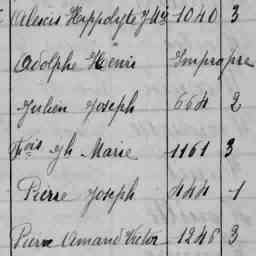 Alexis Hippolyte J M 1040 3
Adolphe Henri Impropre
Julien Joseph 664 2
Fois Jh Marie 1161 3
Pierre Joseph 444 1
Pierre Amand Victor 1246 3